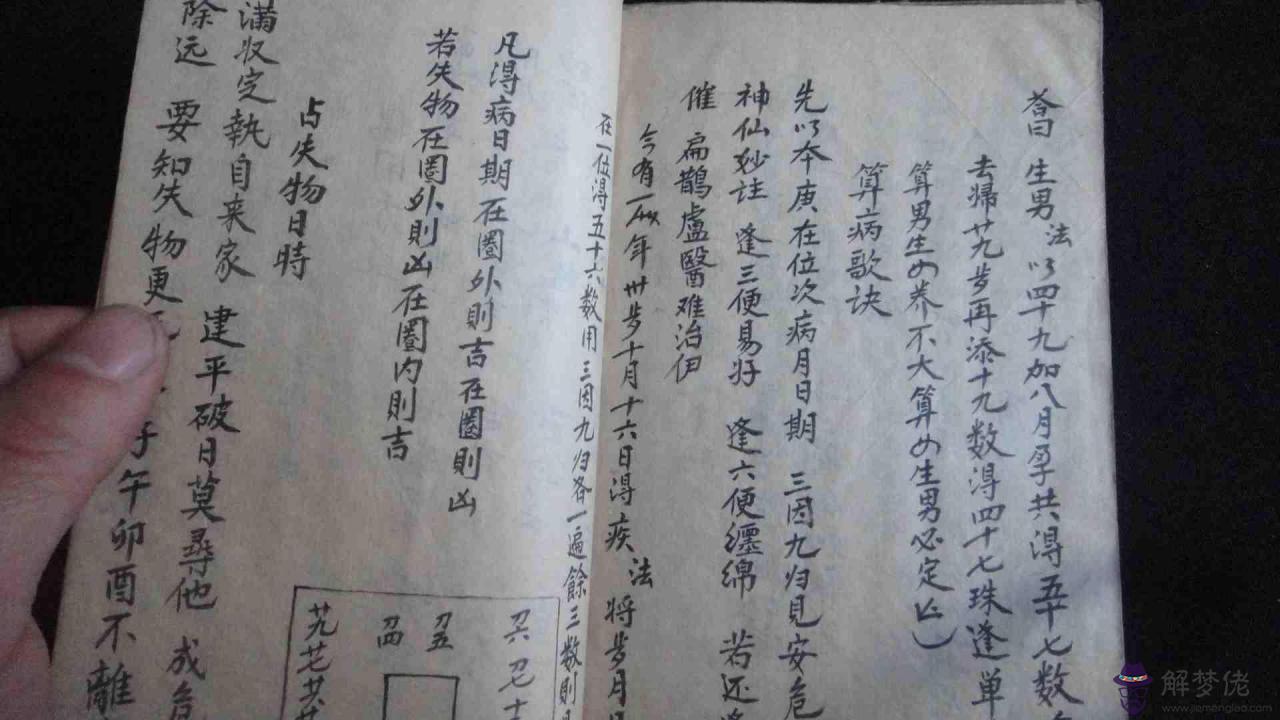 答曰 生男 法以四十九加八月孕共得五十七数
去歸廿九步再添十九数得四十七珠逢单
算男生女养不大算女生男必定亡)
算病歌诀
先以本庚在位次病月日期 三因九归見安危
神仙妙註 逢三便易好 逢六便纒绵 若还逢
催 扁鹊盧醫难治伊
今有一人年卅步十月十六日得疾 法將步月日
在一位得五十六数用三因九归各一遍餘三数則
凡得病日期在圈外則吉在圈則凶
若失物在圈外則凶在圈内則吉
占失物日時
满収定執自来家 建平破日莫尋他 成危
除远 要知失物更 子午卯酉不離
刀六 刀七 十
刀五
刀四
廿九 廿七 廿六
解梦佬
www.jiemenglao.com